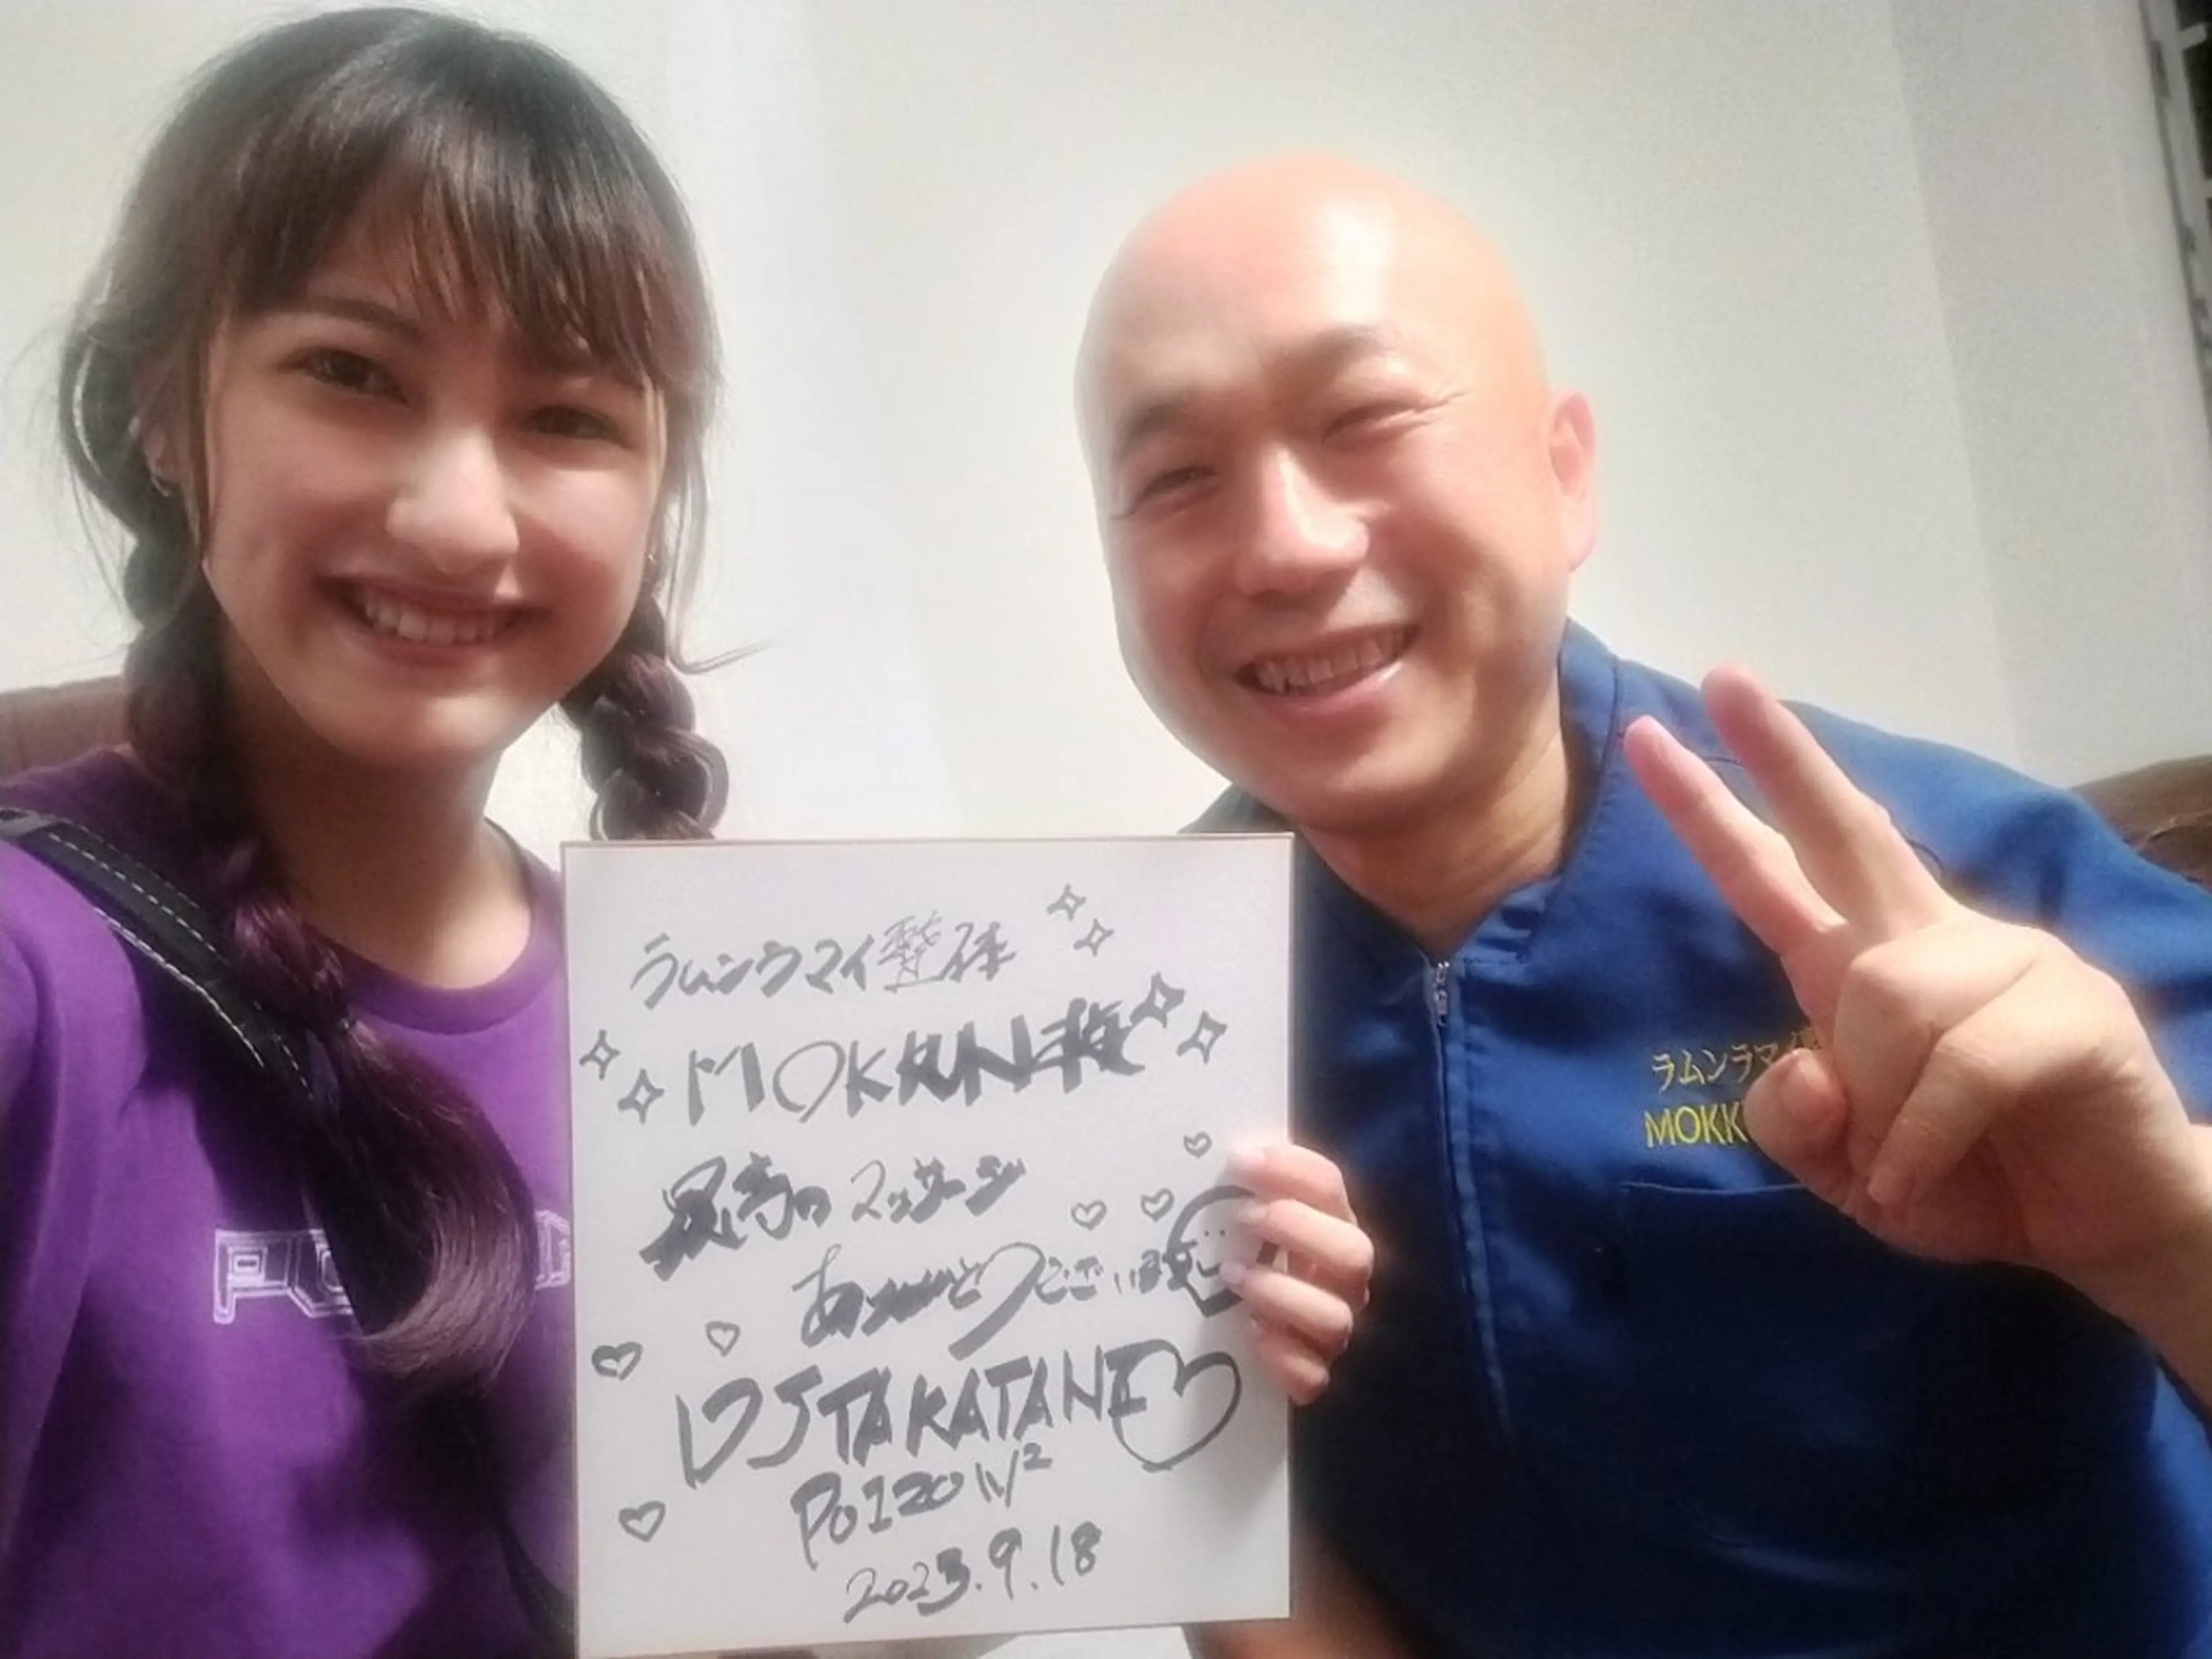 ラムンラマイ整体
MOKKUN様
最高のマッサージ
ありがとうございます
DJ TAKATANE
POIZON
2023.9.18
ラムンラマイ
MOKK